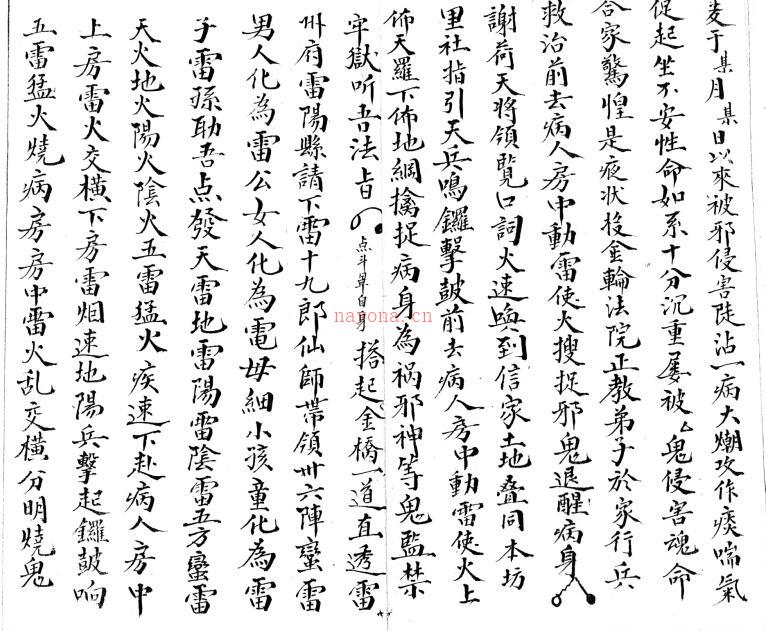 爰于某月某日以來被邪侵害陡沾一病大潮攻作痰喘氣
促起坐不安性命如系十分沉重屡被厶鬼侵害魂命
合家驚惶是夜状投金輪法院正教弟子於家行兵
救治前去病人房中動雷使火搜捉邪鬼退醒病身
謝荷天將領覧口詞火速喚到信家土地叠同本坊
里社指引天兵鳴鑼擊皷前去病人房中動雷使火上
佈天羅下佈地網擒捉病身為禍邪神等鬼監禁
牢獄听吾法旨 点斗罩自身 搭起金橋一道直透雷
州府雷陽縣請下雷十九郎仙師帶領卅六陣蛮雷
男人化為雷公女人化為電母細小孩童化為雷
子雷孫助吾点發天雷地雷陽雷陰雷五方蛮雷
天火地火陽火陰火五雷猛火疾速下赴病人房中
上房雷火交横下房雷烟速地陽兵擊起鑼皷响
五雷猛火燒病房房中雷火乱交横分明燒鬼
nayona.cn